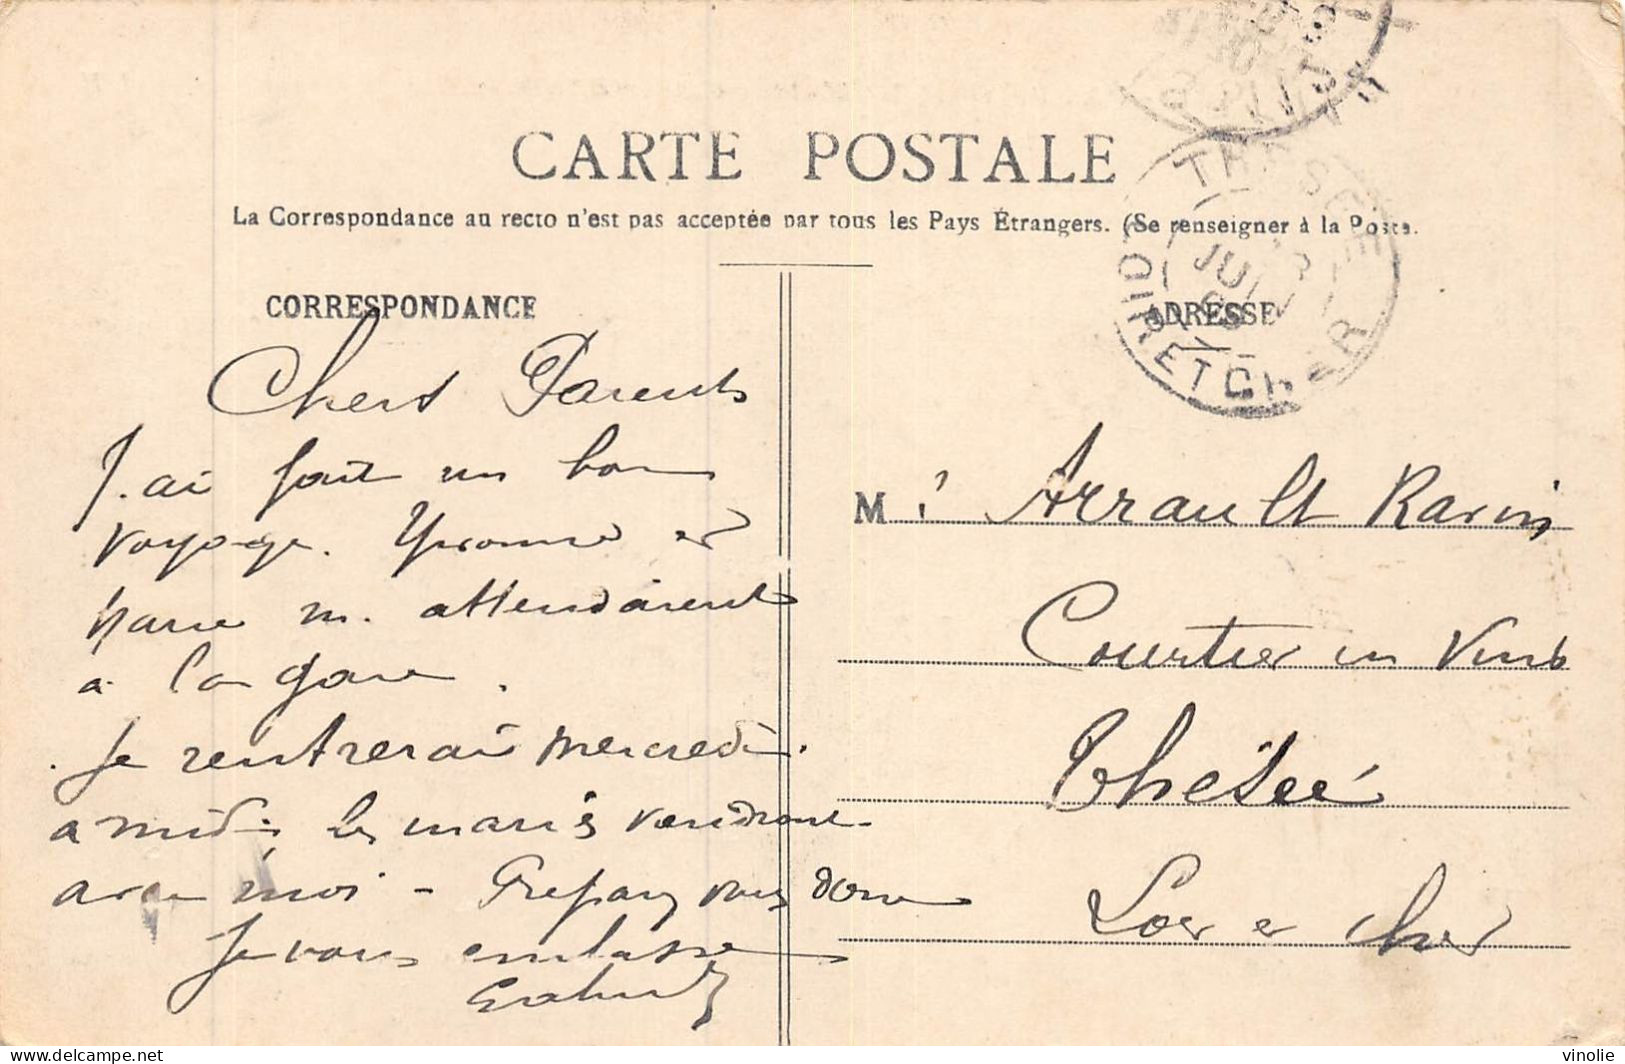 CARTE POSTALE
La Correspondance au recto n'est pas acceptée par tous les Pays Étrangers. (Se renseigner à la Poste.
CORRESPONDANCE
Chers Parents
J.ai fait un bon
voyage. Yvonne et
Marie m. attendaient
a la gare.
Je rentrerai mercredi.
a midi, les mariés viendront
avec moi - Preparez vous donc
Je vous embrasse
ADRESSE
THESEE
JUIL
LOIR ET CHER
M. Arrault Ravin
Courtier en Vins
Thésée
Loir et Cher
delcampe.net
vinolie